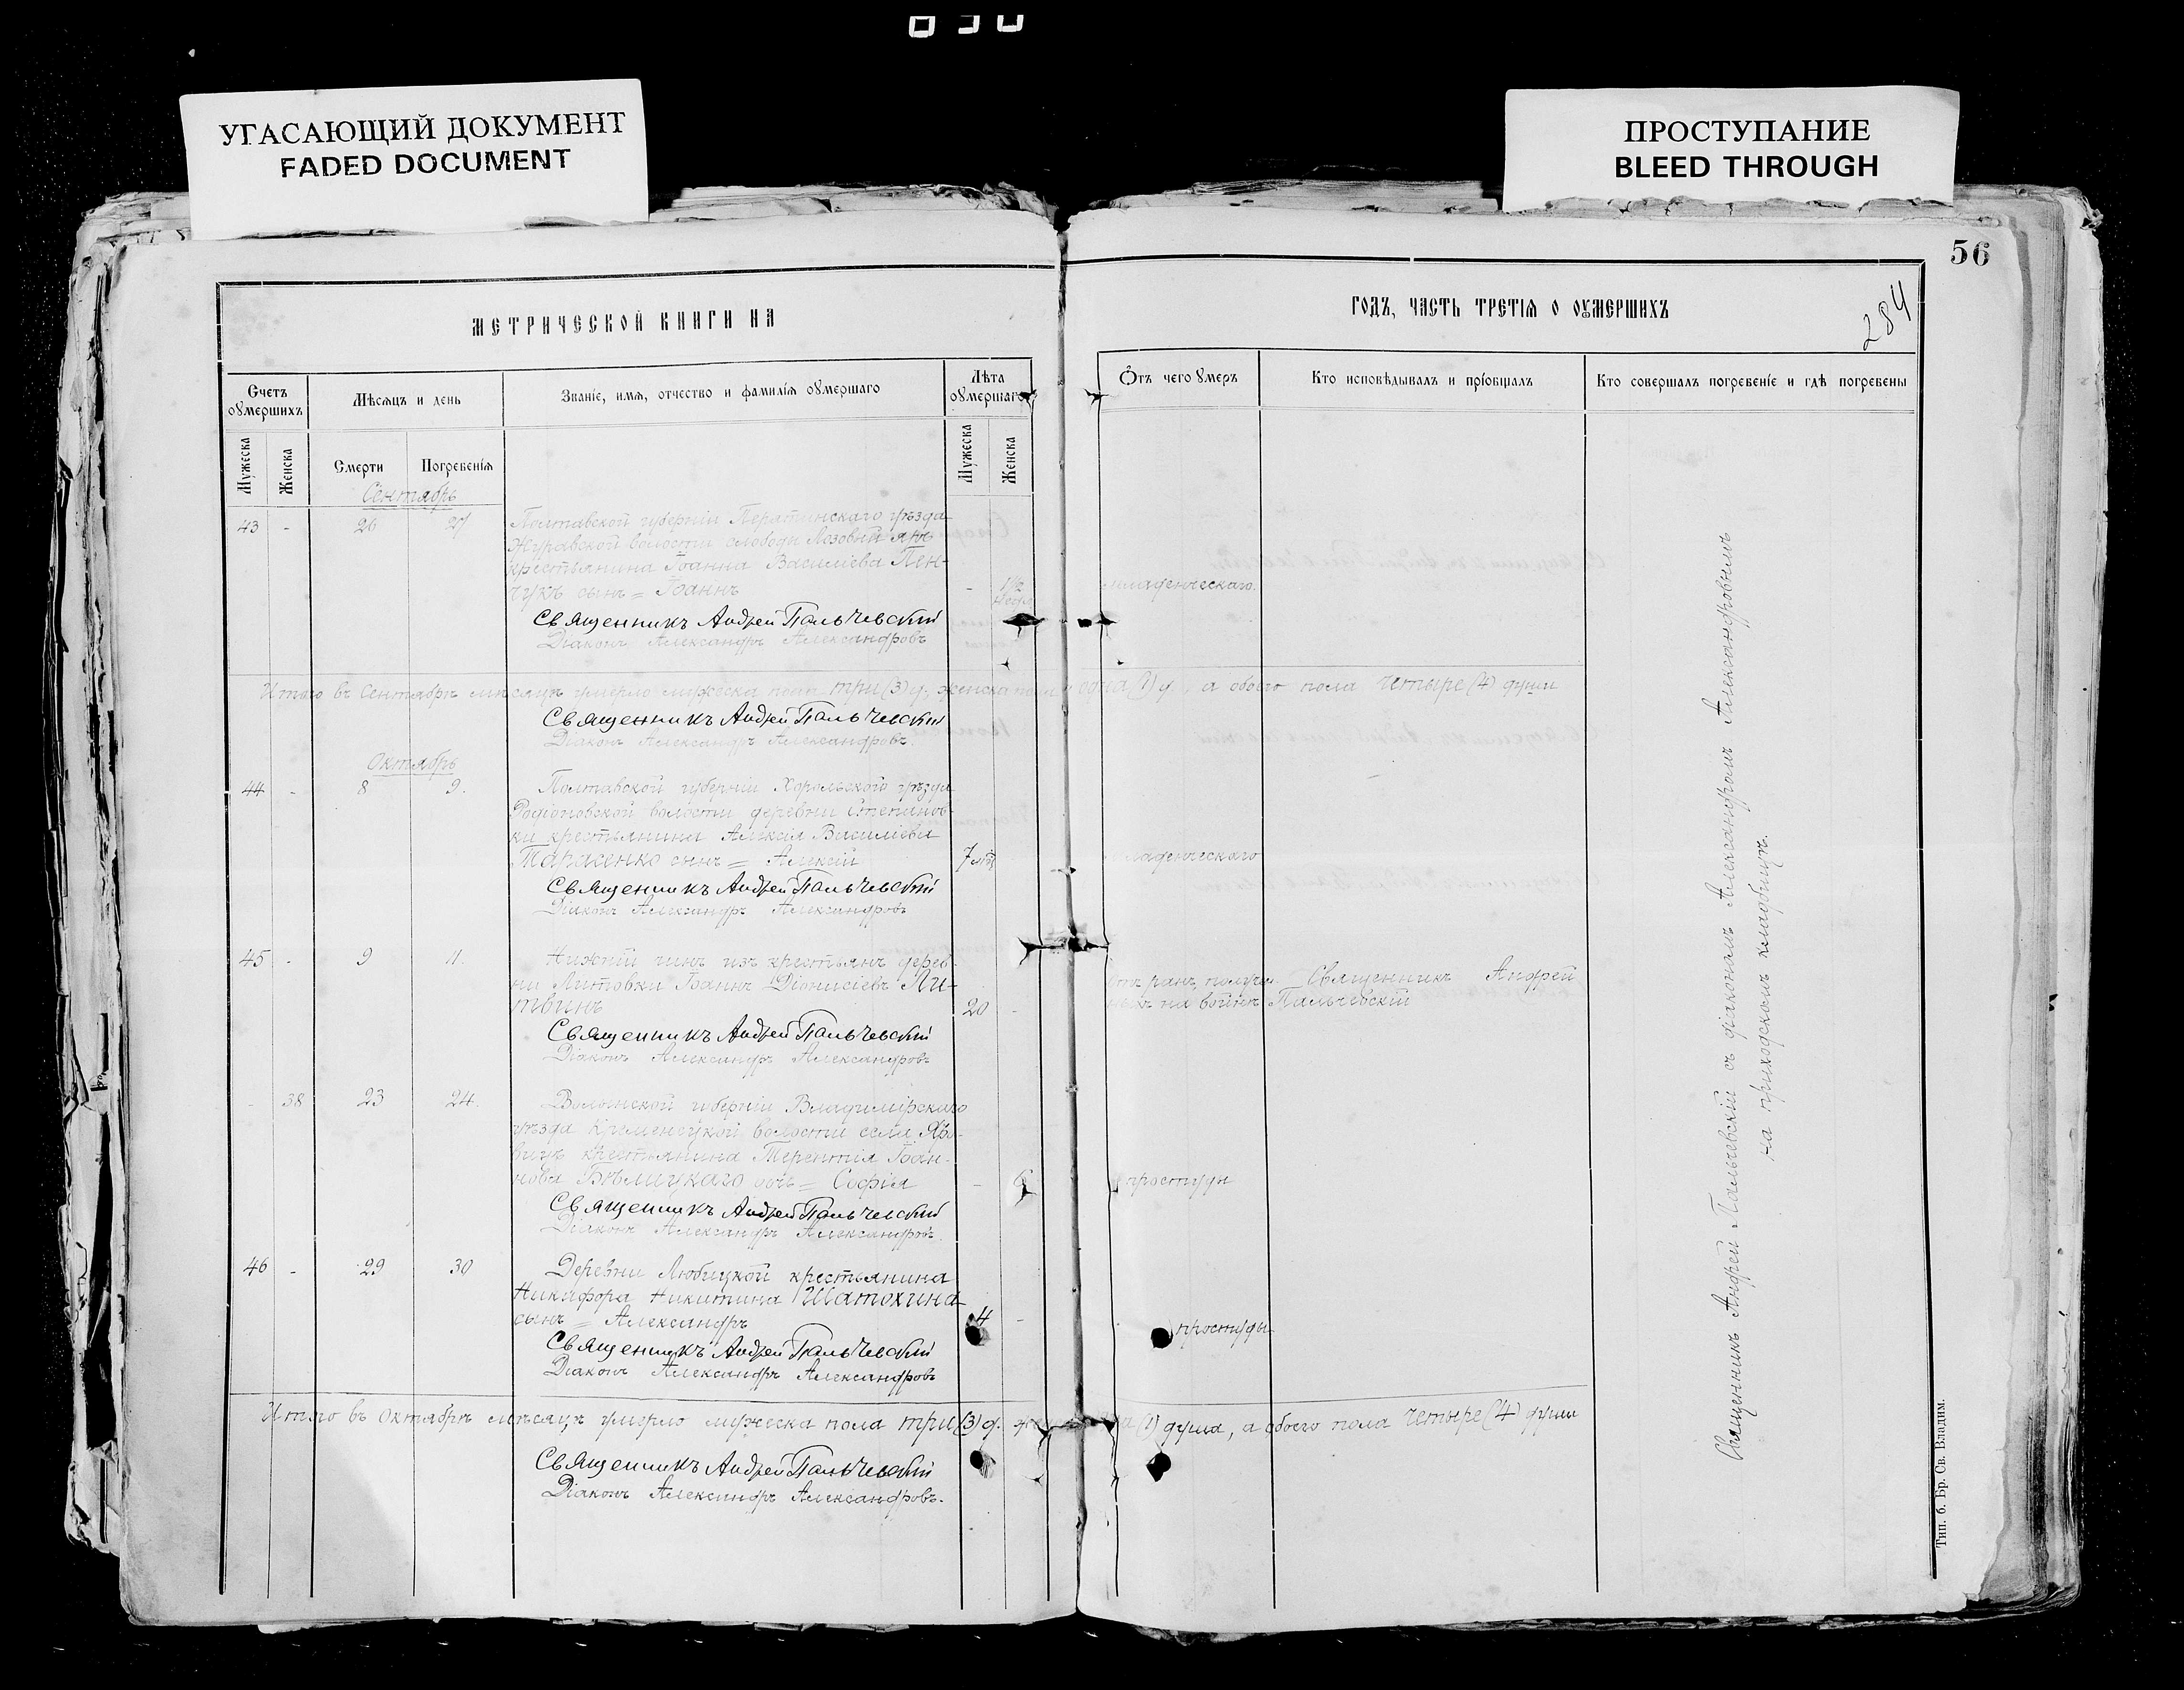 УГАСАЮЩИЙ ДОКУМЕНТ
FADED DOCUMENT
ПРОСТУПАНИЕ
BLEED THROUGH
56
284
МЕТРИЧЕСКОЙ КНИГИ НА
ГОДЪ, ЧАСТЬ ТРЕТІЯ О ОУМЕРШИХЪ
Счетъ оумершихъ
Мѣсяцъ и день
Званіе, имя, отчество и фамилія оумершаго
Лѣта оумершаго
Отъ чего умеръ
Кто исповѣдывалъ и пріобщалъ
Кто совершалъ погребеніе и гдѣ погребены
Мужеска
Женска
Смерти
Погребенія
Мужеска
Женска
Сентябрь
43 - 26 27 Полтавской губерніи Пирятинскаго уѣзда
Журавской волости слободы Лозовый Яръ
крестьянина Іоанна Василіева Пен-
чукъ сынъ = Іоаннъ - 1½ нед младенческаго
Священникъ Андрей Пальчевский
Діаконъ Александръ Александровъ
Итого въ Сентябрѣ мѣсяцѣ умерло мужеска пола три (3) д, женска пола одна (1) д, а обоего пола четыре (4) души
Священникъ Андрей Пальчевский
Діаконъ Александръ Александровъ.
Октябрь
44 - 8 9. Полтавской губерніи Хорольскаго уѣзда
Родіоновской волости деревни Степанов-
ки крестьянина Алексія Василіева
Тарасенко сынъ = Алексій 7 младенческаго
Священникъ Андрей Пальчевский
Діаконъ Александръ Александровъ
45 - 9 11. Нижній чинъ изъ крестьянъ дерев-
ни Литовки Іоаннъ Діонисіевъ Ли-
твинъ 20 -
отъ ранъ, получен- Священникъ Андрей
ныхъ на войнѣ Пальчевскій
Священникъ Андрей Пальчевский
Діаконъ Александръ Александровъ
- 38 23 24. Волынской губерніи Владимірскаго
уѣзда волости села Яро-
вищъ крестьянина Терентія Іоан-
нова Бѣлицкаго дочь = Софія - 6 простуды
Священникъ Андрей Пальчевский
Діаконъ Александръ Александровъ.
46 - 29 30 Деревни Любицкой крестьянина
Никифора Никитина Шатохина
сынъ = Александръ 4 - простуды
Священникъ Андрей Пальчевский
Діаконъ Александръ Александровъ
Итого въ Октябрѣ мѣсяцѣ умерло мужеска пола три (3) д. (1) душа, а обоего пола четыре (4) души
Священникъ Андрей Пальчевский
Діаконъ Александръ Александровъ.
Священникъ Андрей Пальчевскій съ діакономъ Александромъ Александровымъ
на приходскомъ кладбищѣ.
Тип. б. Бр. Св. Владим.